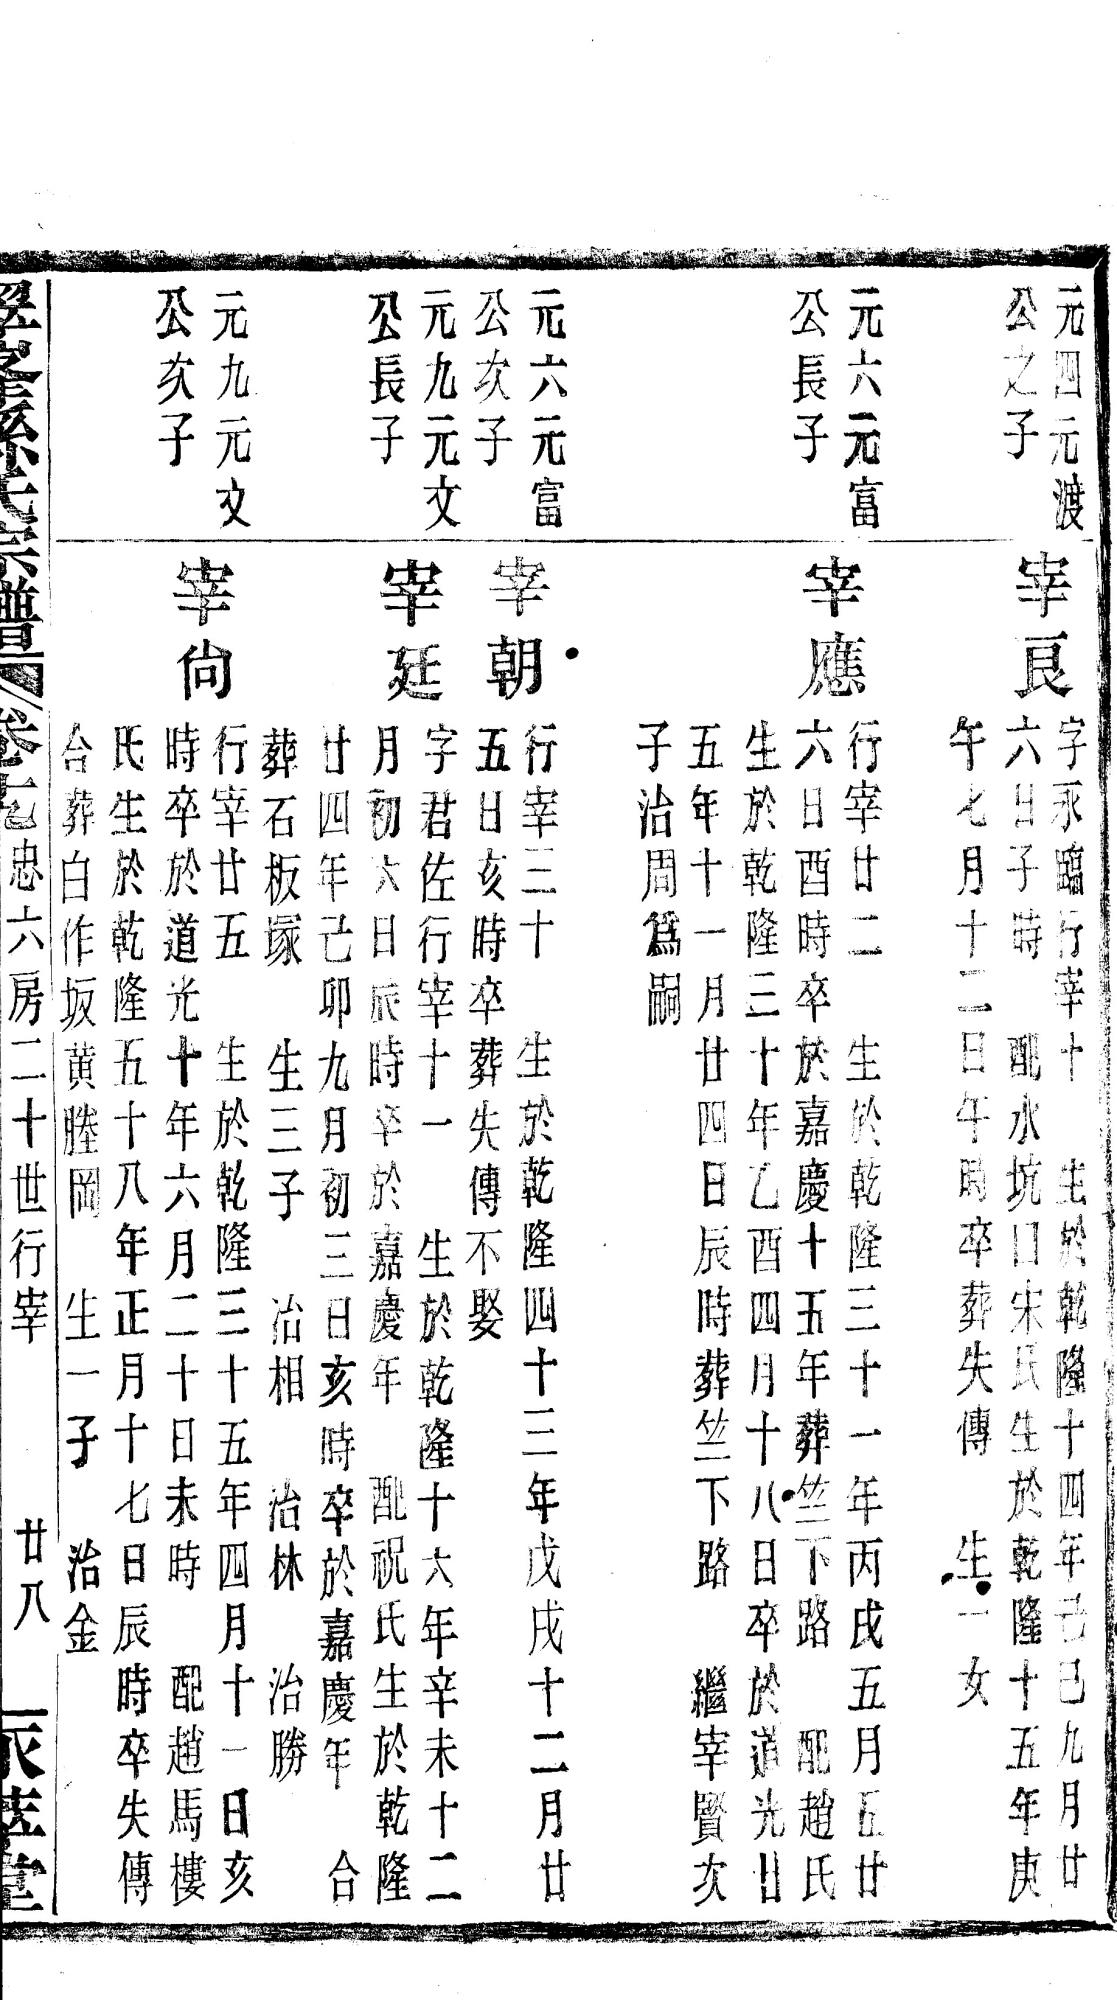 元四元渡
公之子
宰良
字永臨行宰十　生於乾隆十四年己巳九月廿
六日子時　配水坑口宋氏生於乾隆十五年庚
午七月十二日午時卒葬失傳　生一女
元六元富
公長子
宰應
行宰廿二　生於乾隆三十一年丙戌五月五廿
六日酉時卒於嘉慶十五年葬竺下路　配趙氏
生於乾隆三十年乙酉四月十八日卒於道光廿
五年十一月廿四日辰時葬竺下路　繼宰賢次
子治周爲嗣
元六元富
公次子
宰朝
行宰三十　生於乾隆四十三年戊戌十二月廿
五日亥時卒葬失傳不娶
元九元文
公長子
宰廷
字君佐行宰十一　生於乾隆十六年辛未十二
月初六日辰時卒於嘉慶年　配祝氏生於乾隆
廿四年己卯九月初三日亥時卒於嘉慶年　合
葬石板塚　生三子　治相　治林　治勝
元九元文
公次子
宰尙
行宰廿五　生於乾隆三十五年四月十一日亥
時卒於道光十年六月二十日未時　配趙馬樓
氏生於乾隆五十八年正月十七日辰時卒失傳
合葬白作坂黄塍岡　生一子　治金
孫氏宗譜　卷　忠六房二十世行宰　廿八　堂